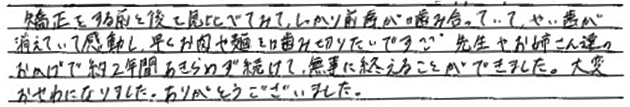 矯正をする前と後と見比べてみて、しっかり前歯が噛み合っていて、やい歯が
消えていて感動し、早くお肉や麺を噛み切りたいです！ 先生やお姉さん達の
おかげで約2年間あきらめず続けて、無事に終えることができました。大変
おせわになりました。ありがとうございました。